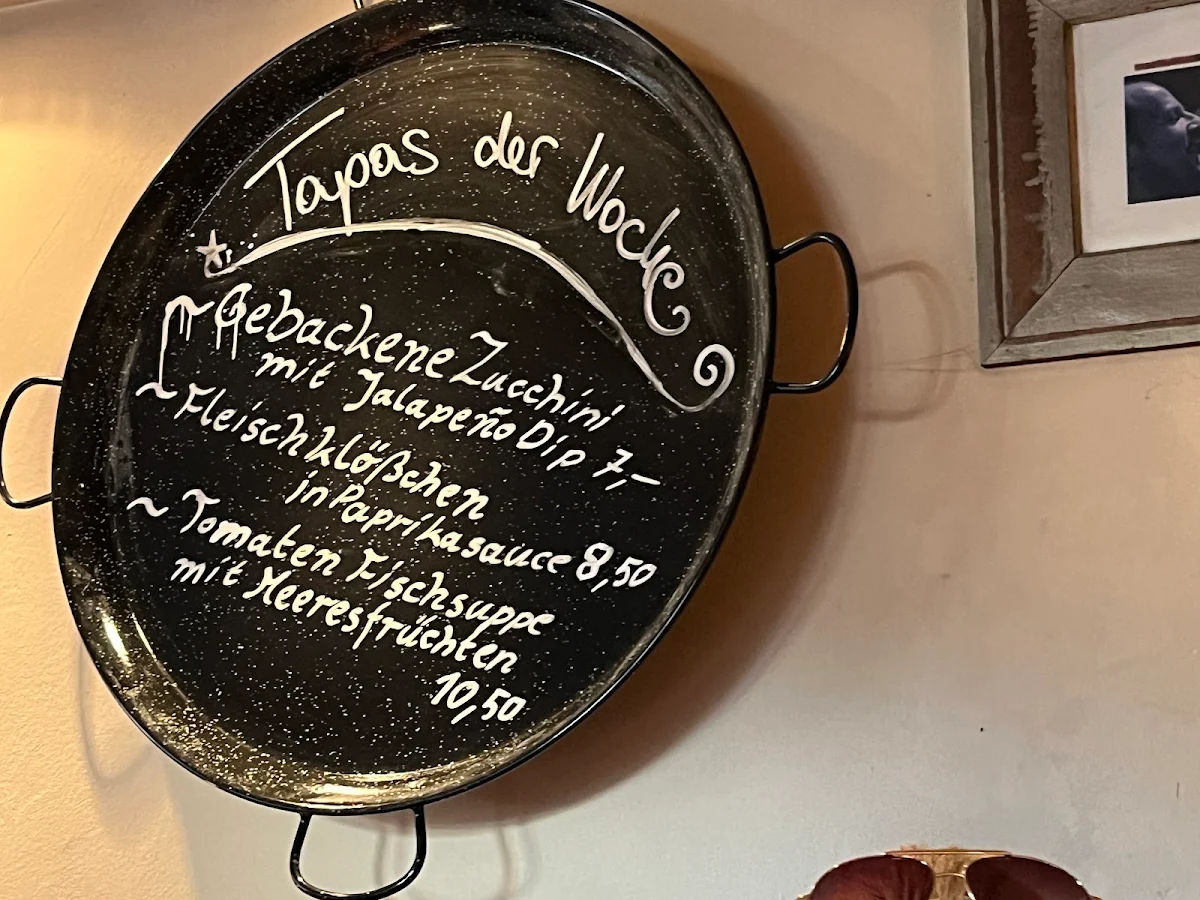 Tapas der Woche
~ Gebackene Zucchini
mit Jalapeño Dip 7,-
~ Fleischklößchen
in Paprikasauce 8,50
~ Tomaten Fischsuppe
mit Meeresfrüchten
10,50